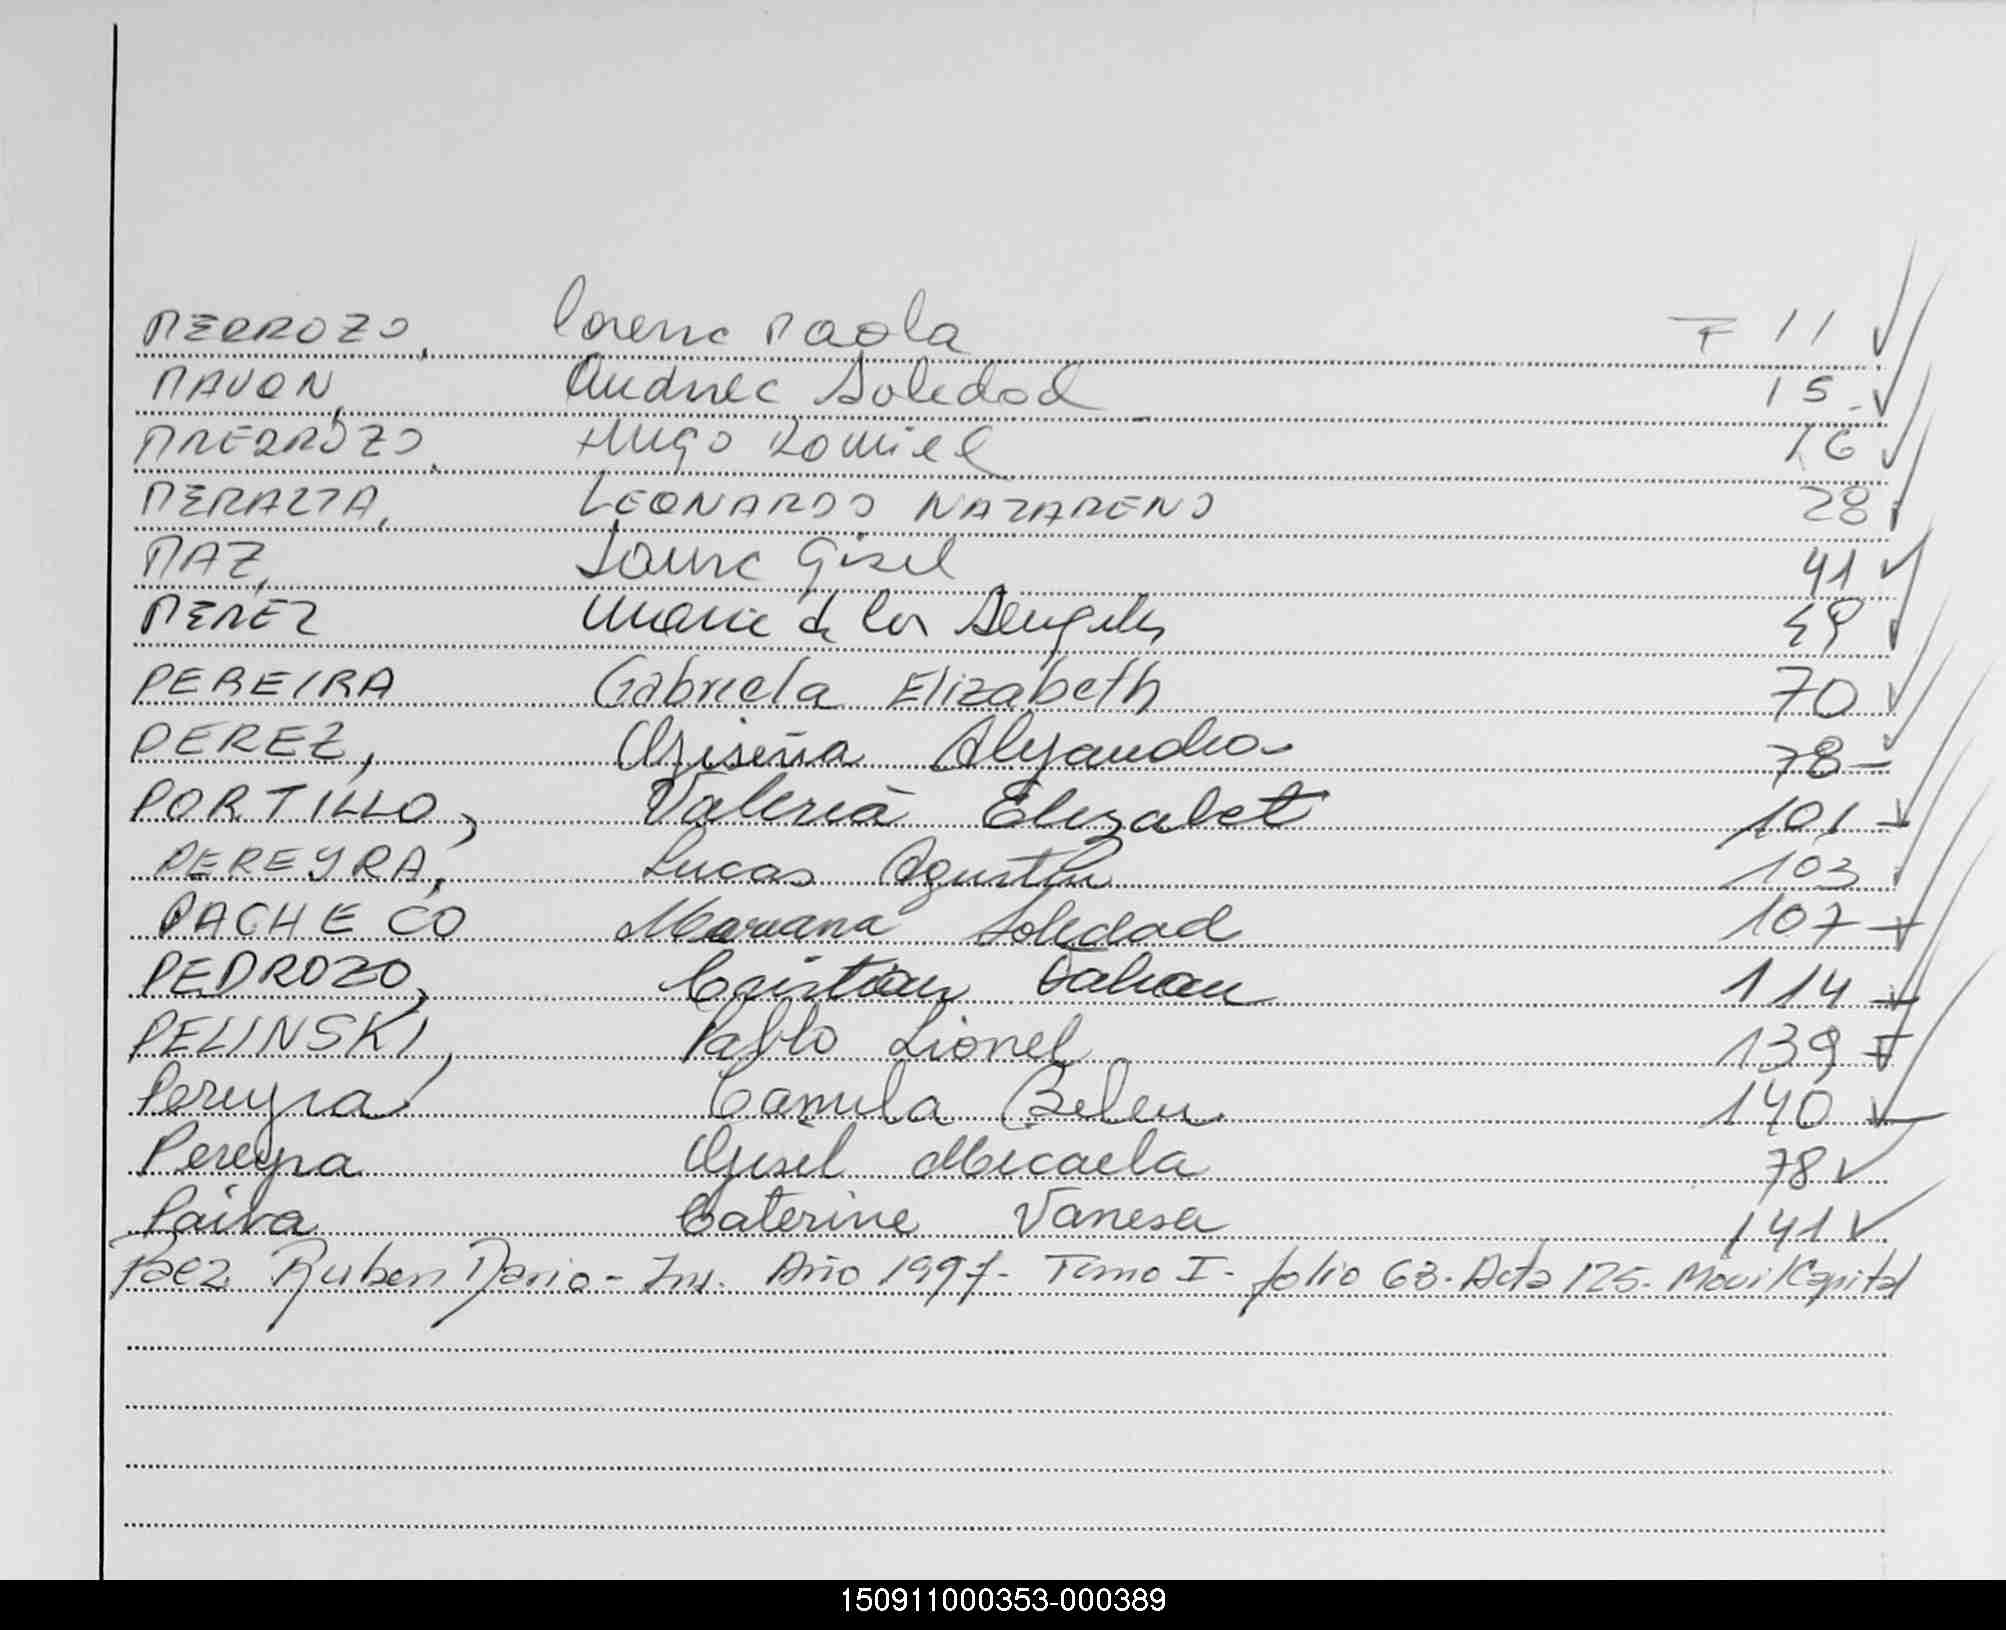 PEDROZO, Lorena Paola F 11
PAVON, Andrea Soledad 15
PREDROZO, Hugo Daniel 16
PERALTA, LEONARDO NAZARENO 28
PAZ, Gisel 41
PEREZ Maria de los Angeles 49
PEREIRA Gabriela Elizabeth 70
PEREZ, Giseña Alejandra 78
PORTILLO, Valeria Elizabet 101
PEREYRA, Lucas Agustín 103
PACHECO Mariana Soledad 107
PEDROZO, Cristian 114
PELINSKI, Pablo Lionel 139
Pereyra Camila Belen 140
Pereyra Gisel Micaela 78
Paiva Caterine Vanesa 141
Paez Ruben Dario - Ins. Año 1997 - Tomo I - folio 63 - Acta 125 - Movil Capital
150911000353-000389